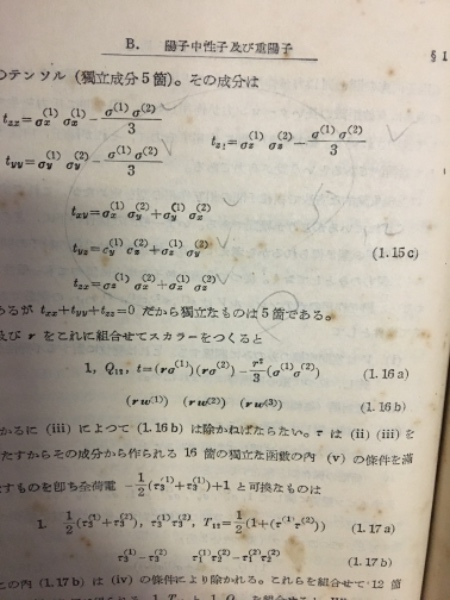 B. 陽子中性子及び重陽子
§1
のテンソル (獨立成分5箇)。その成分は
t_{xx}=σ_x^{(1)} σ_x^{(2)} − σ^{(1)} σ^{(2)}/3
t_{yy}=σ_y^{(1)} σ_y^{(2)} − σ^{(1)} σ^{(2)}/3
σ_z^{(1)} σ_z^{(2)} − σ^{(1)} σ^{(2)}/3
t_{xy}=σ_x^{(1)} σ_y^{(2)}+σ_y^{(1)} σ_x^{(2)}
t_{yz}=σ_y^{(1)} σ_z^{(2)}+σ_z^{(1)} σ_y^{(2)} (1.15c)
t_{zx}=σ_z^{(1)} σ_x^{(2)}+σ_x^{(1)} σ_z^{(2)}
あるが t_{xx}+t_{yy}+t_{zz}=0 だから獨立なものは5箇である。
及び r をこれに組合せてスカラーをつくると
1, Q_{12}, t=(rσ^{(1)})(rσ^{(2)}) − r²/3 (σ^{(1)}σ^{(2)}) (1.16a)
(rw^{(1)}) (rw^{(2)}) (rw^{(3)}) (1.16b)
かるに (iii) によつて (1.16b) は除かねばならない。τ は (ii) (iii) を
たすからその成分から作られる 16 箇の獨立な函數の内 (v) の條件を滿
すものを卽ち全荷電 −1/2(τ_3^{(1)}+τ_3^{(2)})+1 と可換なものは
1. 1/2(τ_3^{(1)}+τ_3^{(2)}), τ_3^{(1)}τ_3^{(2)}, T_{12}=1/2(1+(τ^{(1)}τ^{(2)})) (1.17a)
τ_3^{(1)}−τ_3^{(2)} τ_1^{(1)}τ_2^{(2)}−τ_2^{(1)}τ_1^{(2)} (1.17b)
この内 (1.17b) は (iv) の條件により除かれる。これらを組合せて 12 箇